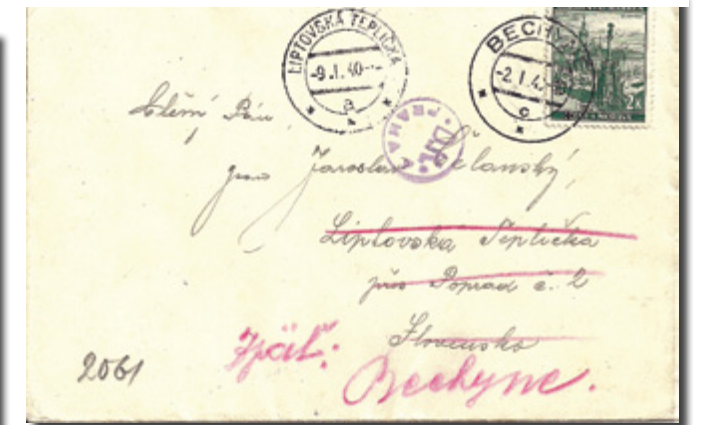 LIPTOVSKÁ TEPLIČKA
-9.I.40--
a
BECHYNĚ
-2.I.4
c
PRAHA
Ctěný Pán
pan Jaroslav
Liptovska Teplička
přes Poprad č. 2
Slovensko
Zpäť:
Bechyne.
2061